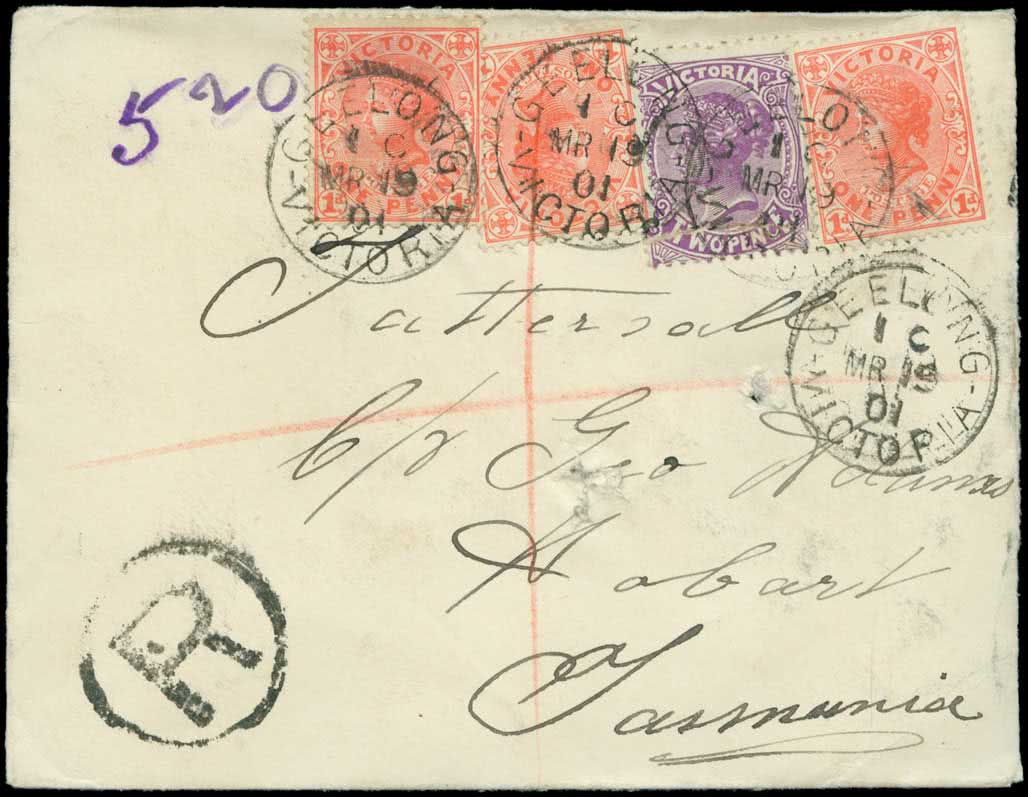 520
VICTORIA
1d ONE PENNY 1d
ONE PENNY
VICTORIA
TWO PENCE
VICTORIA
1d ONE PENNY 1d
GEELONG
1 C
MR 19
01
VICTORIA
GEELONG
1 C
MR 19
01
VICTORIA
MR 19
GEELONG
1 C
MR 19
01
VICTORIA
Tattersall
c/o Geo Adams
Hobart
Tasmania
R